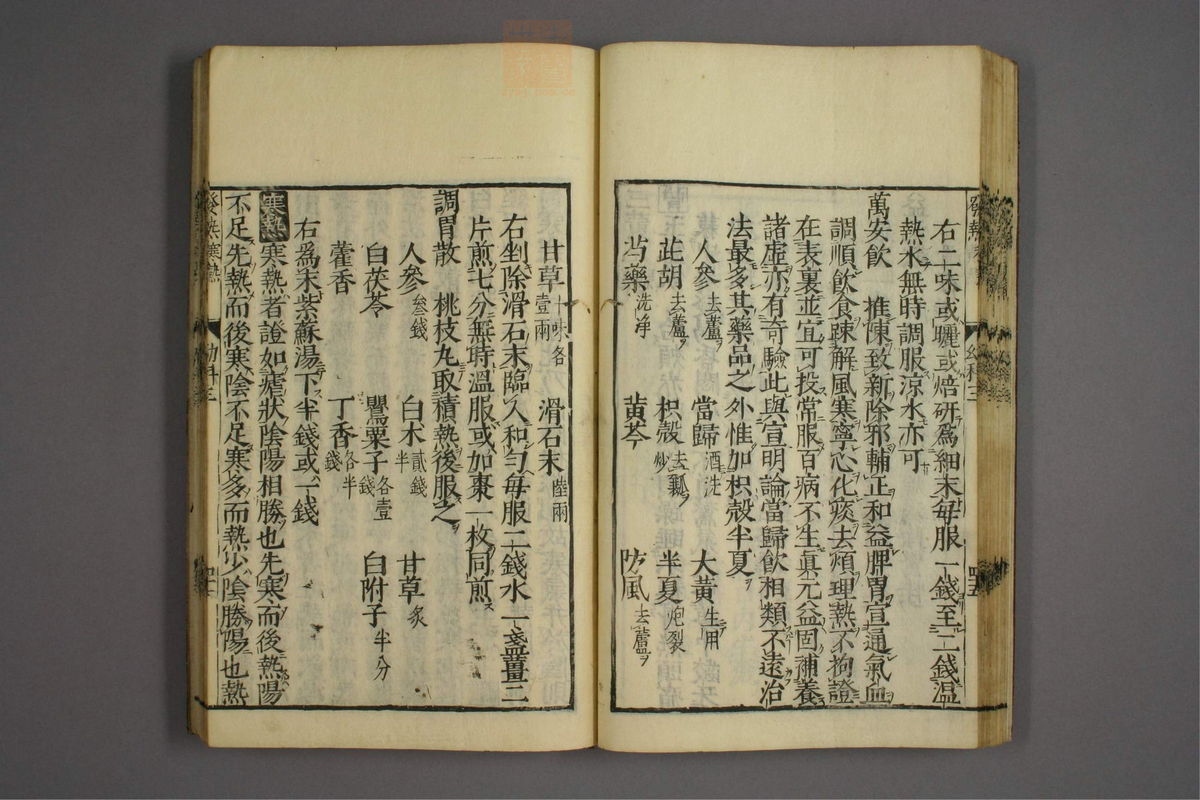 右二味或曬或焙研爲細末每服一錢至二錢温
熱水無時調服涼水亦可
萬安飲 推陳致新除邪輔正和益脾胃宣通氣血
調順飲食踈解風寒寧心化痰去煩理熱不拘證
在表裏並宜可投常服百病不生眞元益固補養
諸虛亦有奇驗此與宣明論當歸飲相類不遠治
法最多其藥品之外惟加枳殼半夏
人參去蘆 當歸酒洗 大黃生用
茈胡去蘆 枳殼去瓤炒 半夏炮裂
芍藥洗净 黃芩 防風去蘆
甘草十味各壹兩 滑石末陸兩
右剉除滑石末臨入和勻每服二錢水一盞薑二
片煎七分無時溫服或如棗一枚同煎
調胃散 桃枝丸取積熱後服之
人參叄錢 白术貳錢半 甘草炙
白茯苓 罌粟子各壹錢 白附子半分
藿香 丁香各半錢
右爲末紫蘇湯下半錢或一錢
寒熱 寒熱者證如瘧狀陰陽相勝也先寒而後熱陽
不足先熱而後寒陰不足寒多而熱少陰勝陽也熱
發熱寒熱 幼科三